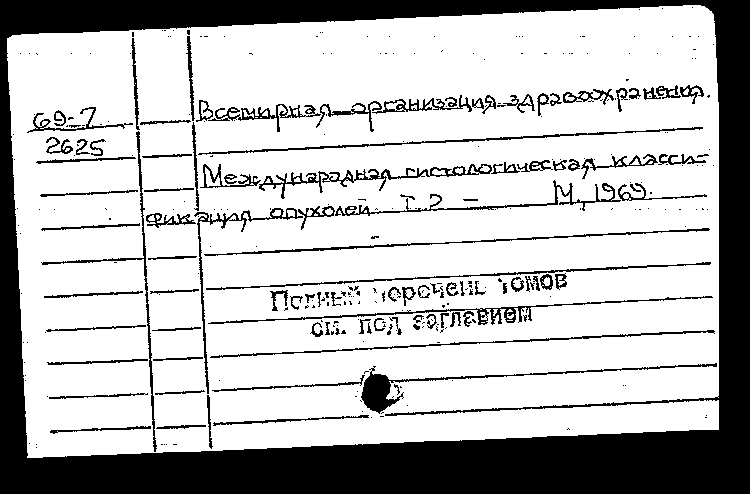 69-7
2625
Всемирная организация здравоохранения.
Международная гистологическая класси-
фикация опухолей. Т. – М., 1969.
Полный перечень томов
см. под заглавием